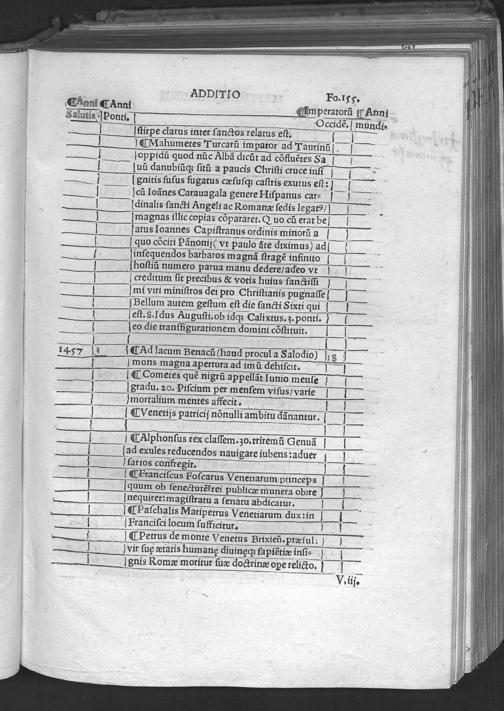 ADDITIO Fo.155.
¶Anni ¶Anni ¶Imperatorū ¶Anni
Salutis Ponti. Occidē. mundi.
stirpe clarus inter sanctos relatus est.
¶Mahumetes Turcarū impator ad Taurinū
oppidū quod nūc Albā dicūt ad cōfluētes Sa
uū danubiūq; sitū a paucis Christi cruce insi
gnitis fusus fugatus cæsusq; castris exutus est:
cū Ioānes Carauagala genere Hispanus car-
dinalis sancti Angeli ac Romanæ sedis legatꝰ/
magnas illic copias cōpararet. Quo cū erat be
atus Ioannes Capistranus ordinis minorū a
quo cōciti Pānonij( vt paulo āte diximus) ad
insequendos barbaros magnā stragē infinito
hostiū numero parua manu dedere/adeo vt
creditum sit precibus & votis huius sanctissi
mi viri ministros dei pro Christianis pugnasse
Bellum autem gestum est die sancti Sixti qui
est.8.Idus Augusti.ob idq; Calixtus.3.ponti.
eo die transfigurationem domini cōstituit.
1457 ¶Ad lacum Benacū(haud procul a Salodio) 18
mons magna apertura ad imū dehiscit.
¶Cometes quē nigrū appellāt Iunio mense
gradu.20.Piscium per mensem visus/varie
mortalium mentes affecit.
¶Venetijs patricij nōnulli ambitu dānantur.
¶Alphonsus rex classem.30.triremū Genuā
ad exules reducendos nauigare iubens:aduer
sarios confregit.
¶Franciscus Foscarus Venetiarum princeps
quum ob senectutē rei publicæ munera obire
nequiret:magistratu a senatu abdicatur.
¶Paschalis Maripetrus Venetiarum dux:in
Francisci locum sufficitur.
¶Petrus de monte Venetus Brixieñ.præsul:
vir suę ætatis humanę diuinęq; sapiētiæ insi-
gnis Romæ moritur suæ doctrinæ ope relicto.
V.iij.